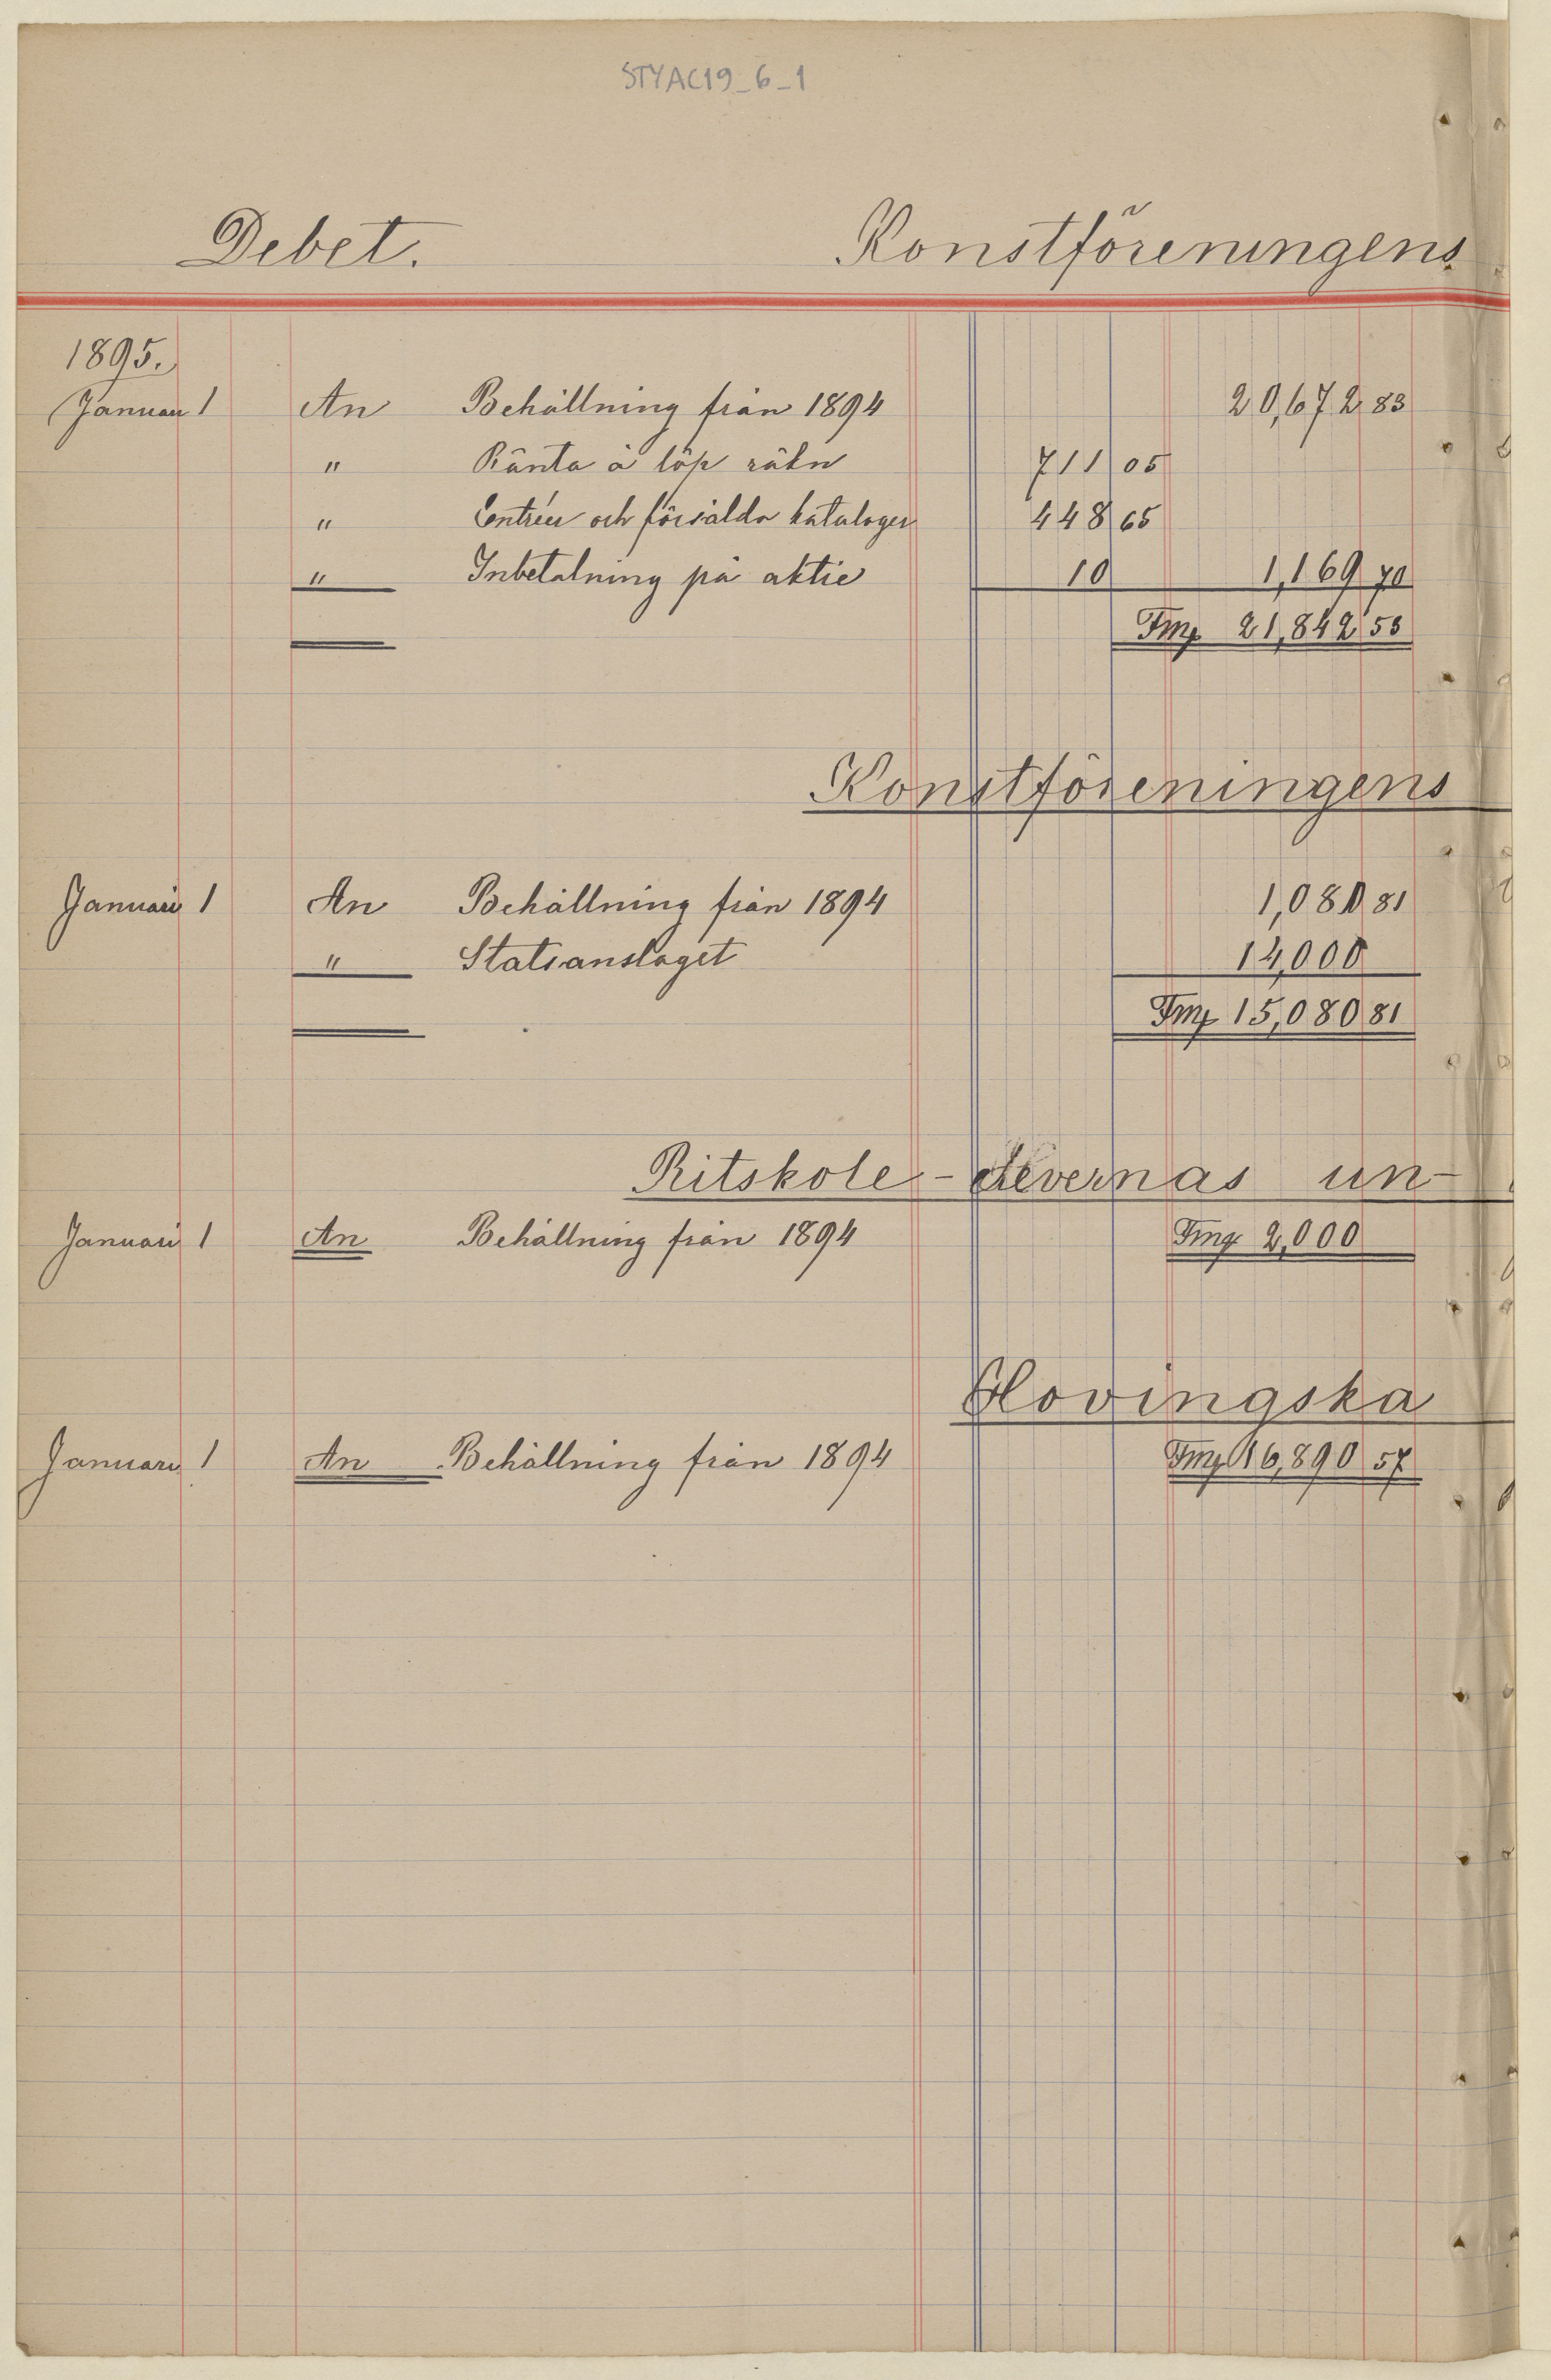 STYAC19_6_1
Debet. Konstföreningens
1895.
Januari 1 An Behållning från 1894 20,672 83
" Ränta å löp räkn 711 05
" Entréer och försålda kataloger 448 65
" Inbetalning på aktie 10 1,169 70
Fmk 21,842 53
Konstföreningens
Januari 1 An Behållning från 1894 1,080 81
" Statsanslaget 14,000
Fmk 15,080 81
Ritskole-elevernas un-
Januari 1 An Behållning från 1894 Fmk 2,000
Hovingska
Januari 1 An Behållning från 1894 Fmk 16,890 57